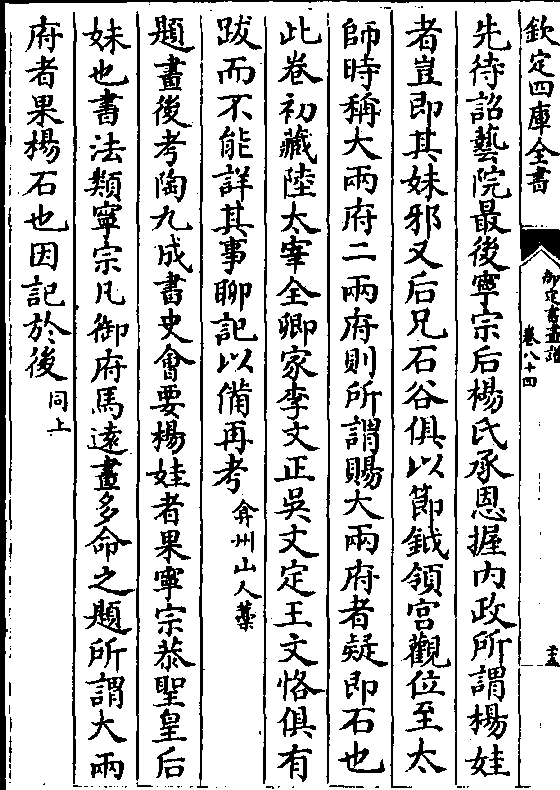 欽定四庫全書
御定書畫譜
卷八十四
先待詔藝院最後寧宗后楊氏承恩握内政所謂楊娃
者豈即其妹邪又后兄石谷俱以節鉞領宫觀位至太
師時稱大兩府二兩府則所謂賜大兩府者疑即石也
此卷初藏陸太宰全卿家李文正吳文定王文恪俱有
跋而不能詳其事聊記以備再考弇州山人藁
題畫後考陶九成書史會要楊娃者果寧宗恭聖皇后
妹也書法類寧宗凡御府馬遠畫多命之題所謂大兩
府者果楊石也因記於後同上